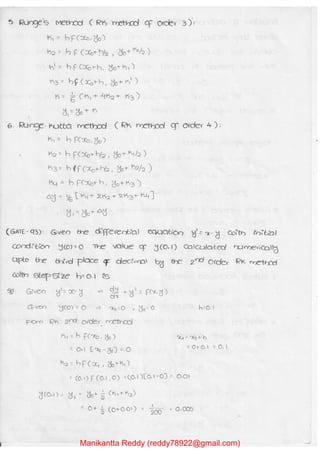 5 Runge's Method (RK method of order 3):
K₁ = h f(x₀, y₀)
K₂ = h f(x₀+h/2, y₀+K₁/2)
K' = h f(x₀+h, y₀+K₁)
K₃ = h f(x₀+h, y₀+K')
K = 1/6 (K₁ + 4K₂ + K₃)
y₁ = y₀ + K
6. Runge-Kutta method (RK method of order 4):
K₁ = h f(x₀, y₀)
K₂ = h f(x₀+h/2, y₀+K₁/2)
K₃ = h f(x₀+h/2, y₀+K₂/2)
K₄ = h f(x₀+h, y₀+K₃)
Δy = 1/6 [K₁ + 2K₂ + 2K₃ + K₄]
y₁ = y₀ + Δy
(GATE-93): Given the differential equation y' = x-y with initial
condition y(0)=0 The value of y(0.1) calculated numerically
upto the third place of decimal by the 2nd order RK method
with step size h=0.1 is
Given y' = x-y ⇒ dy/dx = y' = f(x,y)
Given y(0)=0 ⇒ x₀=0, y₀=0 h=0.1
From RK 2nd order method
K₁ = h f(x₀, y₀) x₁ = x₀+h
= 0.1 [x₀-y₀] = 0 = 0+0.1 = 0.1
K₂ = h f(x₁, y₀+K₁)
= (0.1) f(0.1, 0) = (0.1)[0.1-0] = 0.01
y(0.1) = y₁ = y₀ + 1/2 (K₁+K₂)
= 0 + 1/2 (0+0.01) = 1/200 = 0.005
Manikantta Reddy (reddy78922@gmail.com)